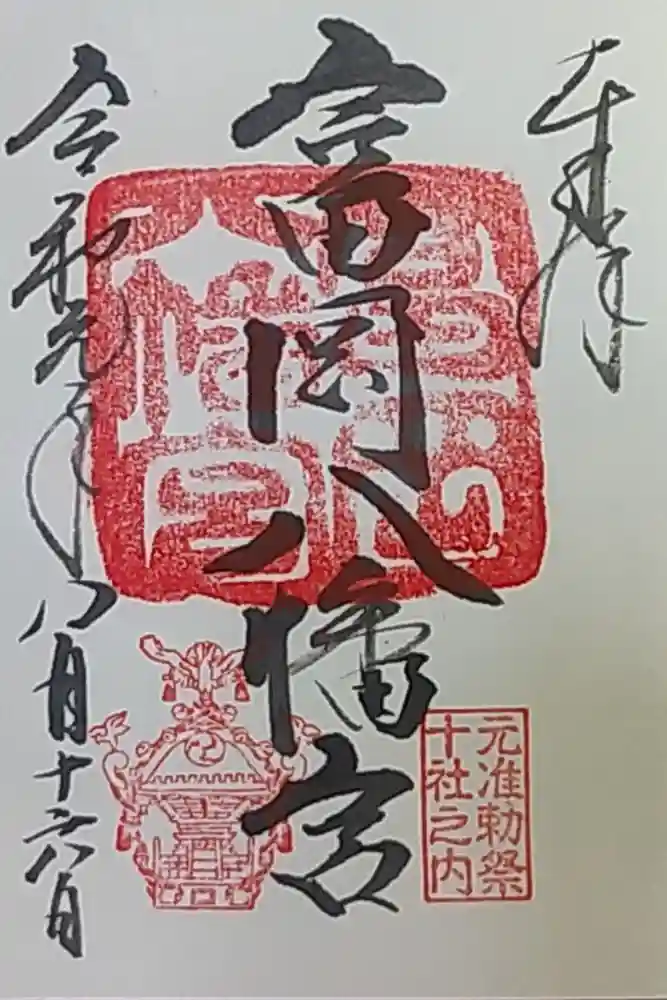 奉拝
富岡八幡宮
令和元年八月十六日
元准勅祭
十社之内